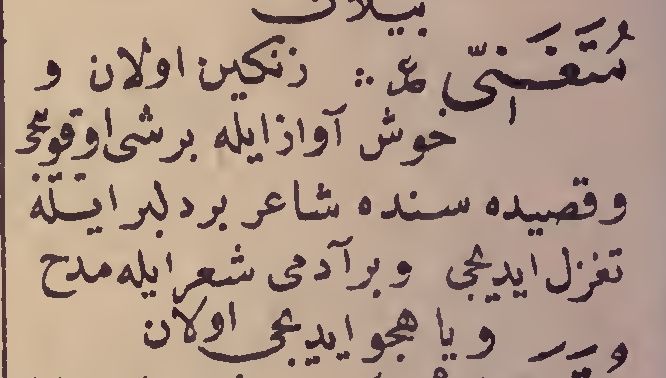 مُتَغَنِّى عر زنكين اولان و
خوش آواز ايله بر شى اوقويجى
و قصيده سنده شاعر بر دلبر ايله
تغزل ايديجى و بر آدمى شعر ايله مدح
و يا هجو ايديجى اولان